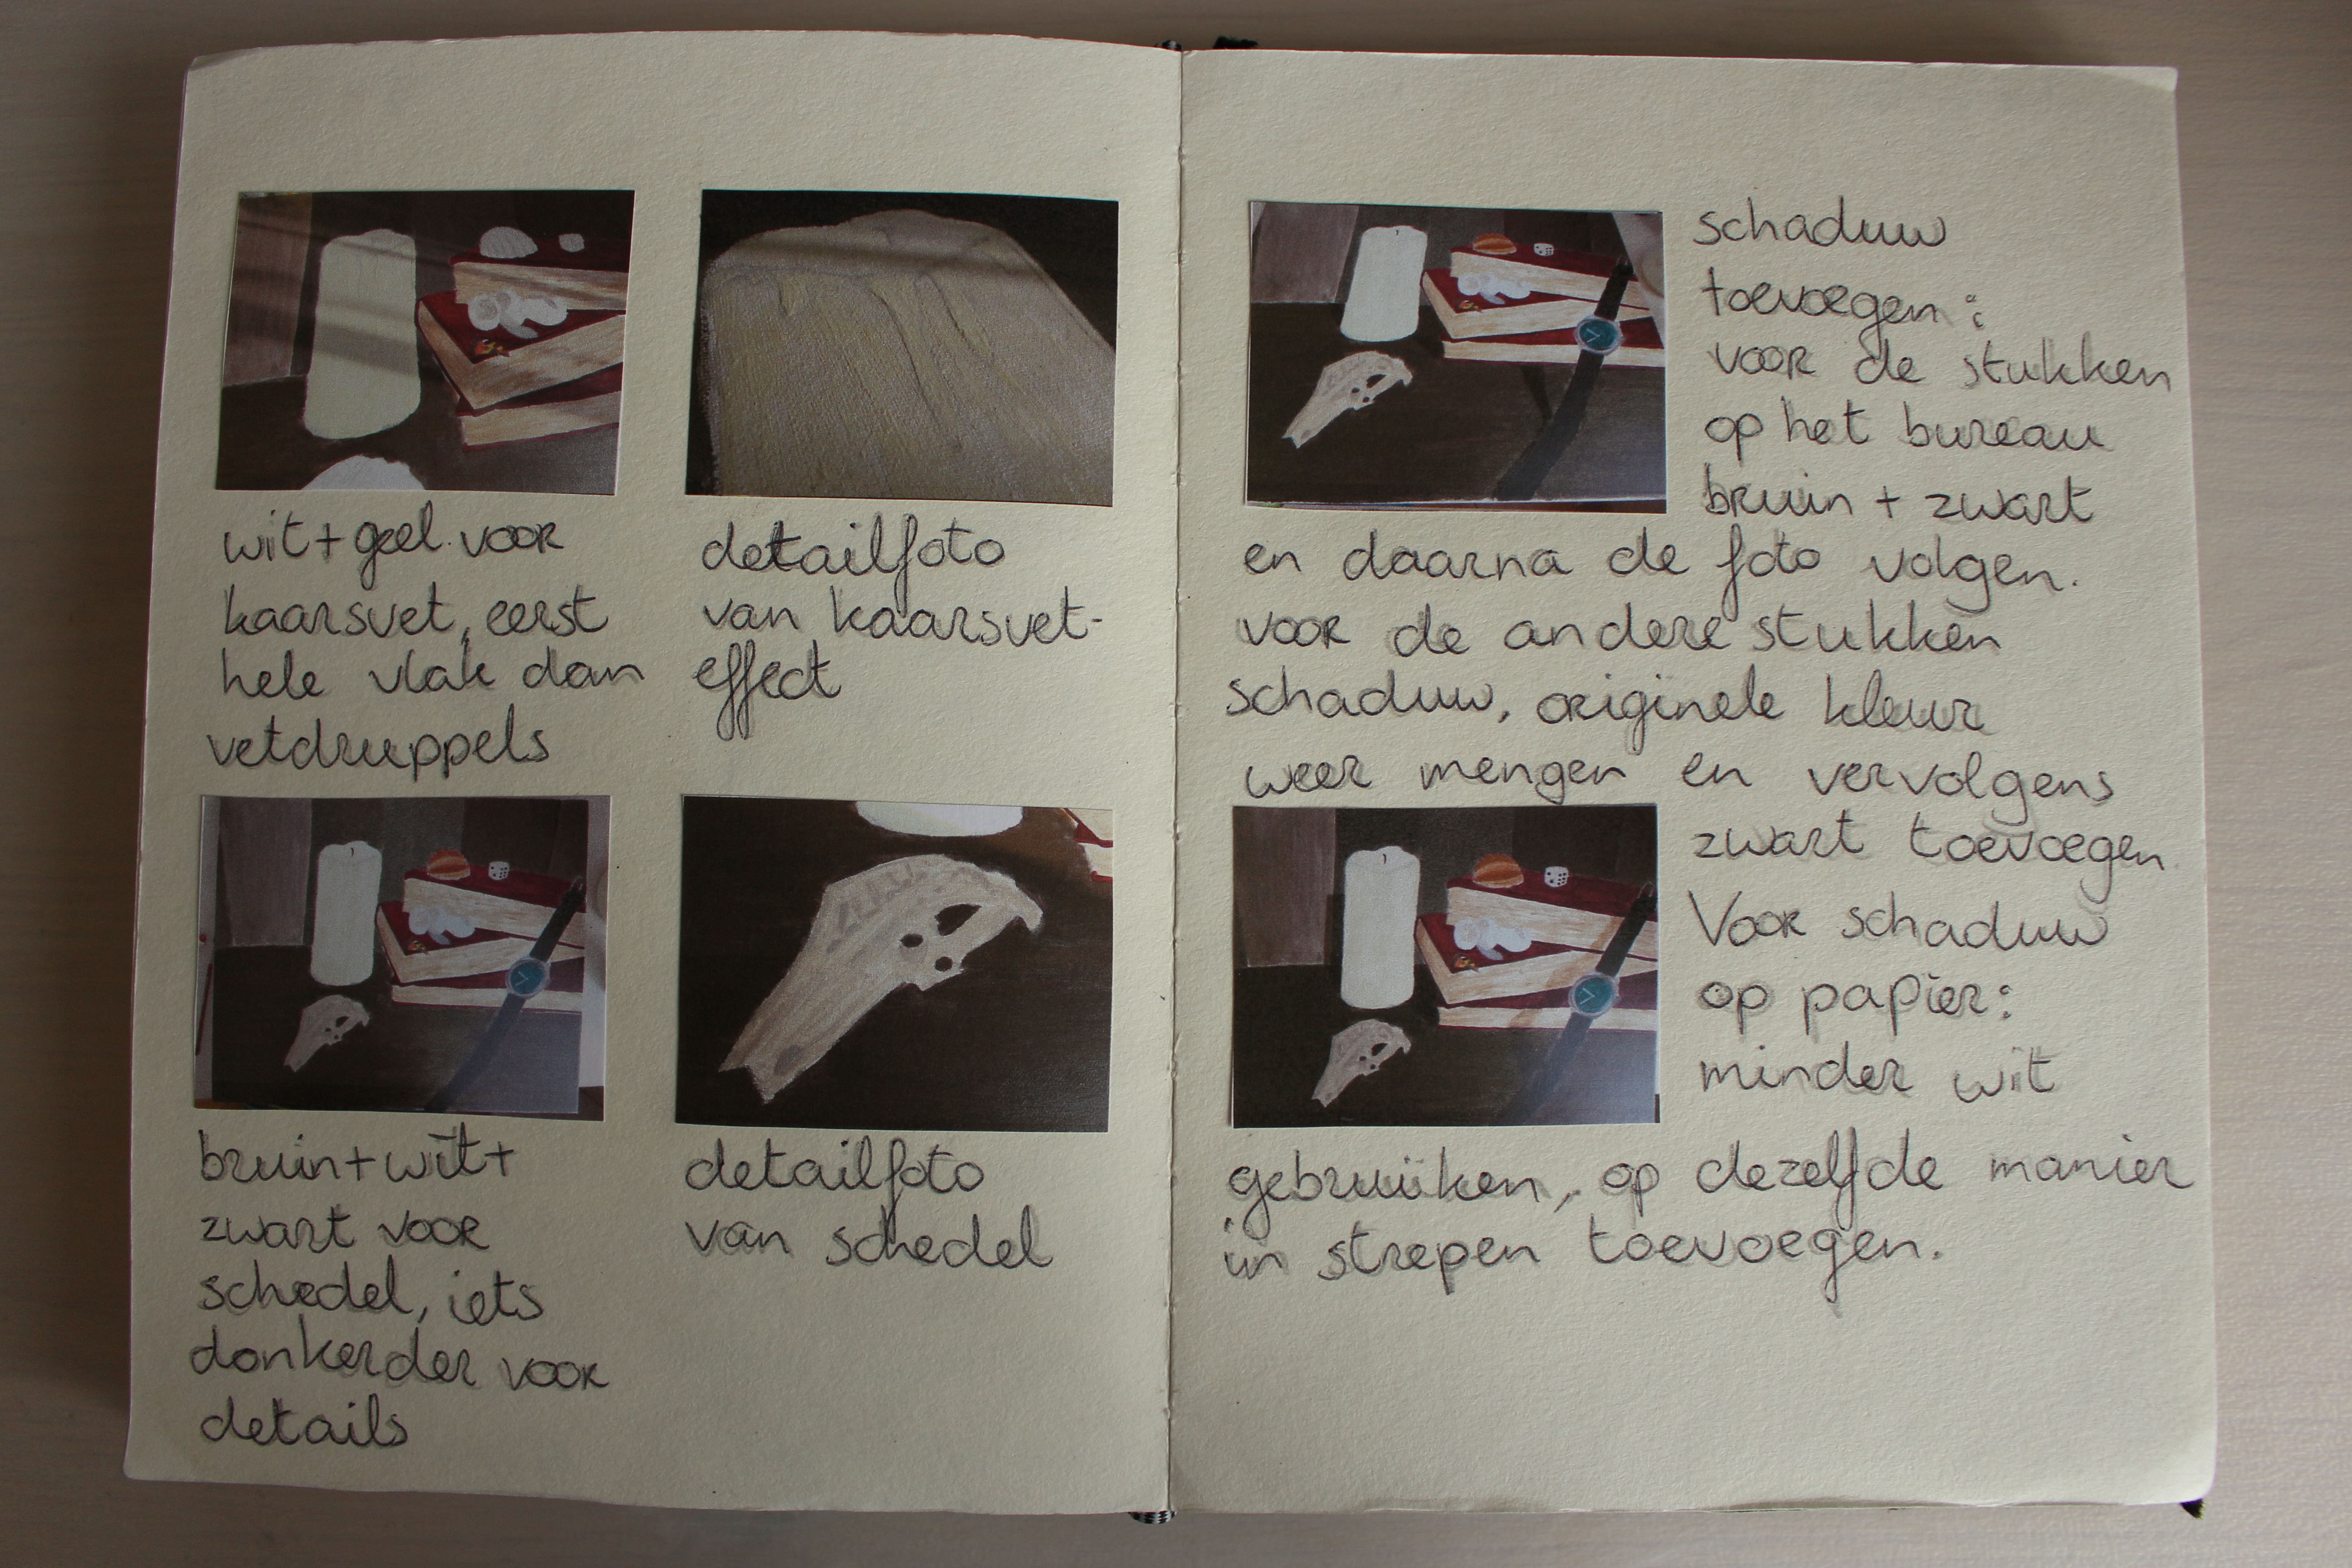 wit+geel voor
kaarsvet, eerst
hele vlak dan
vetdruppels
detailfoto
van kaarsvet-
effect
bruin+wit+
zwart voor
schedel, iets
donkerder voor
details
detailfoto
van schedel
schaduw
toevoegen:
voor de stukken
op het bureau
bruin + zwart
en daarna de foto volgen.
voor de andere stukken
schaduw, originele kleur
weer mengen en vervolgens
zwart toevoegen.
Voor schaduw
op papier:
minder wit
gebruiken, op dezelfde manier
in strepen toevoegen.